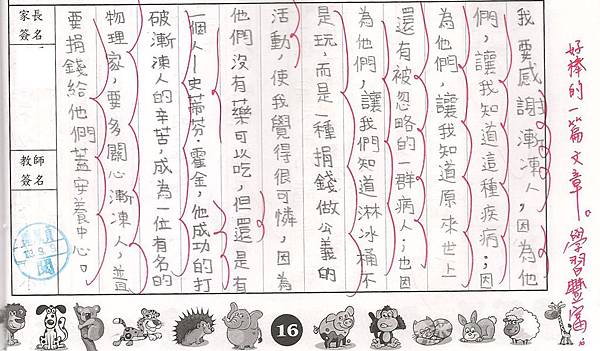 好棒的一篇文章。學習豐富。
我要感謝漸凍人，因為他
們，讓我知道這種疾病；因
為他們，讓我知道原來世上
還有被忽略的一群病人；也因
為他們，讓我們知道淋冰桶不
是玩，而是一種捐錢做公義的
活動，使我覺得很可憐，因為
他們沒有藥可以吃，但還是有
一個人—史蒂芬·霍金，他成功的打
破漸凍人的辛苦，成為一位有名的
物理家，要多關心漸凍人，並
要捐錢給他們蓋安養中心。
家長簽名
教師簽名
閱
16